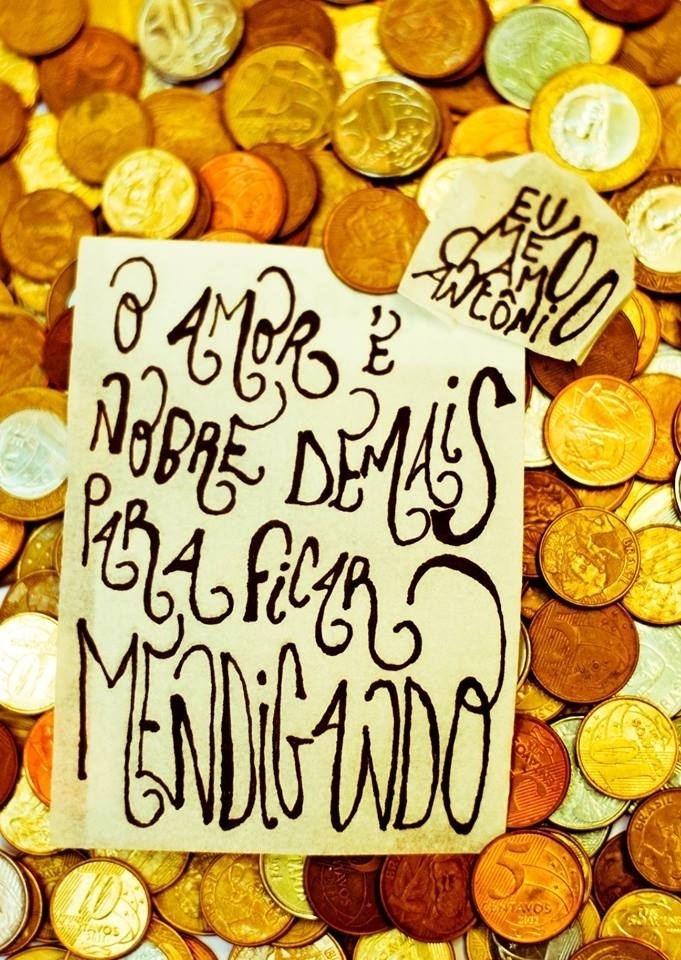 O AMOR É
NOBRE DEMAIS
PARA FICAR
MENDIGANDO
EU
ME
CHAMO
ANTÔNIO
50
BRASIL
CENTAVOS
5
CENTAVOS
10
CENTAVOS